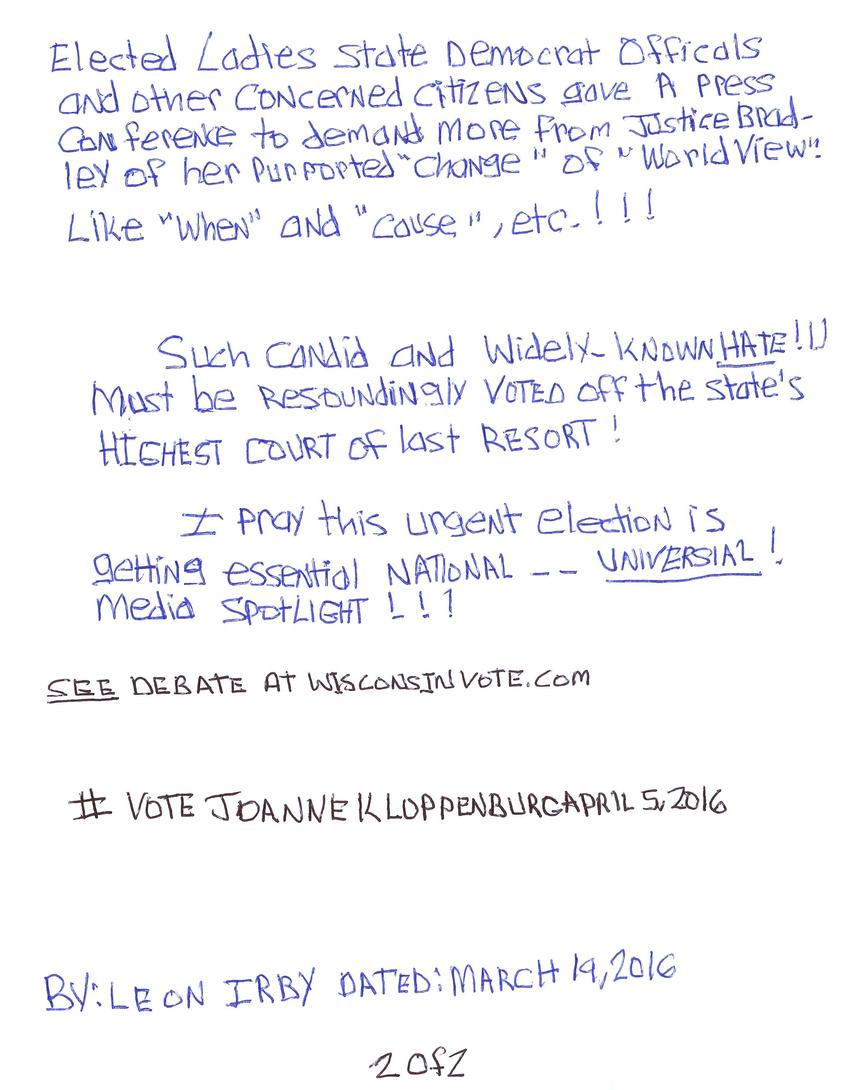 Elected Ladies State Democrat Officals
and other Concerned Citizens gave A Press
Conference to demand more from Justice Brad-
ley of her Purported "Change" of "World View".
Like "When" and "Cause", etc.!!!
Such Candid and Widely-KNOWN HATE!!!
Must be RESOUNDiNgly VOTED off the state's
HIGHEST COURT OF last RESORT!
I pray this urgent election is
getting essential NATIONAL -- UNIVERSIAL!
Media SPOTLIGHT!!!
SEE DEBATE AT WISCONSINVOTE.COM
# VOTE JOANNE KLOPPENBURGAPRIL 5, 2016
BY: LEON IRBY DATED: MARCH 19, 2016
2 of 2